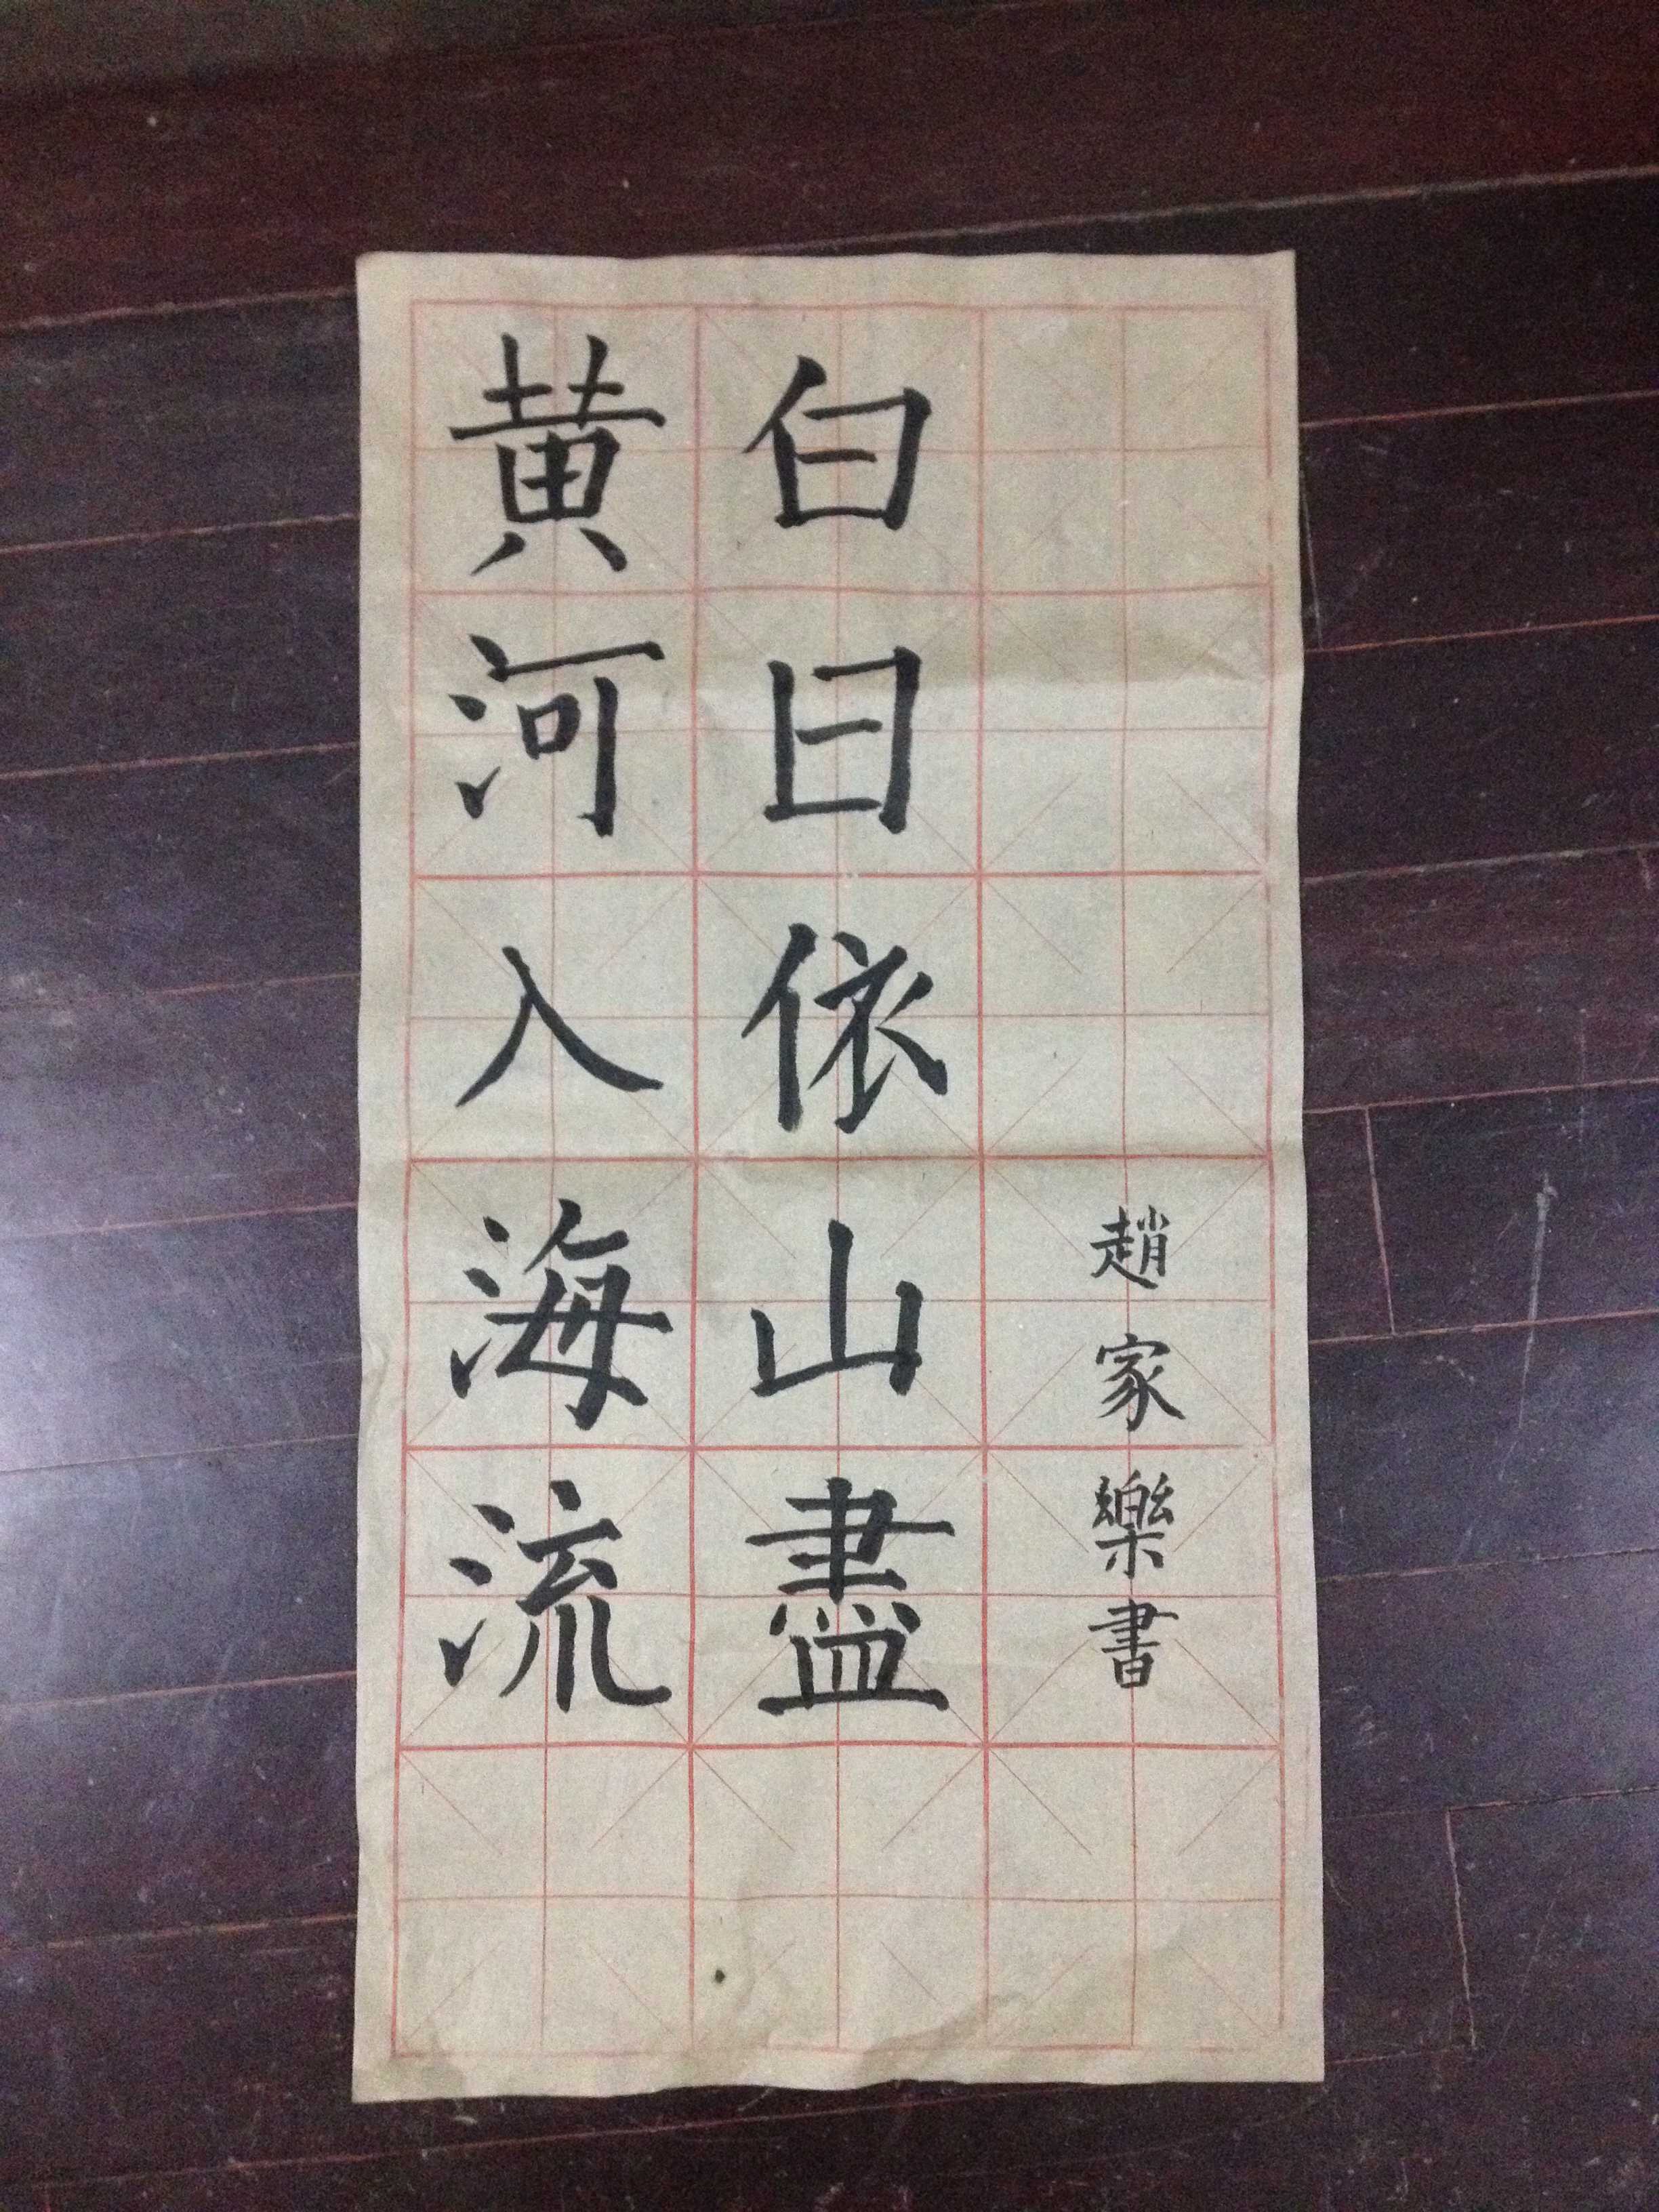 趙家樂書
白日依山盡
黄河入海流